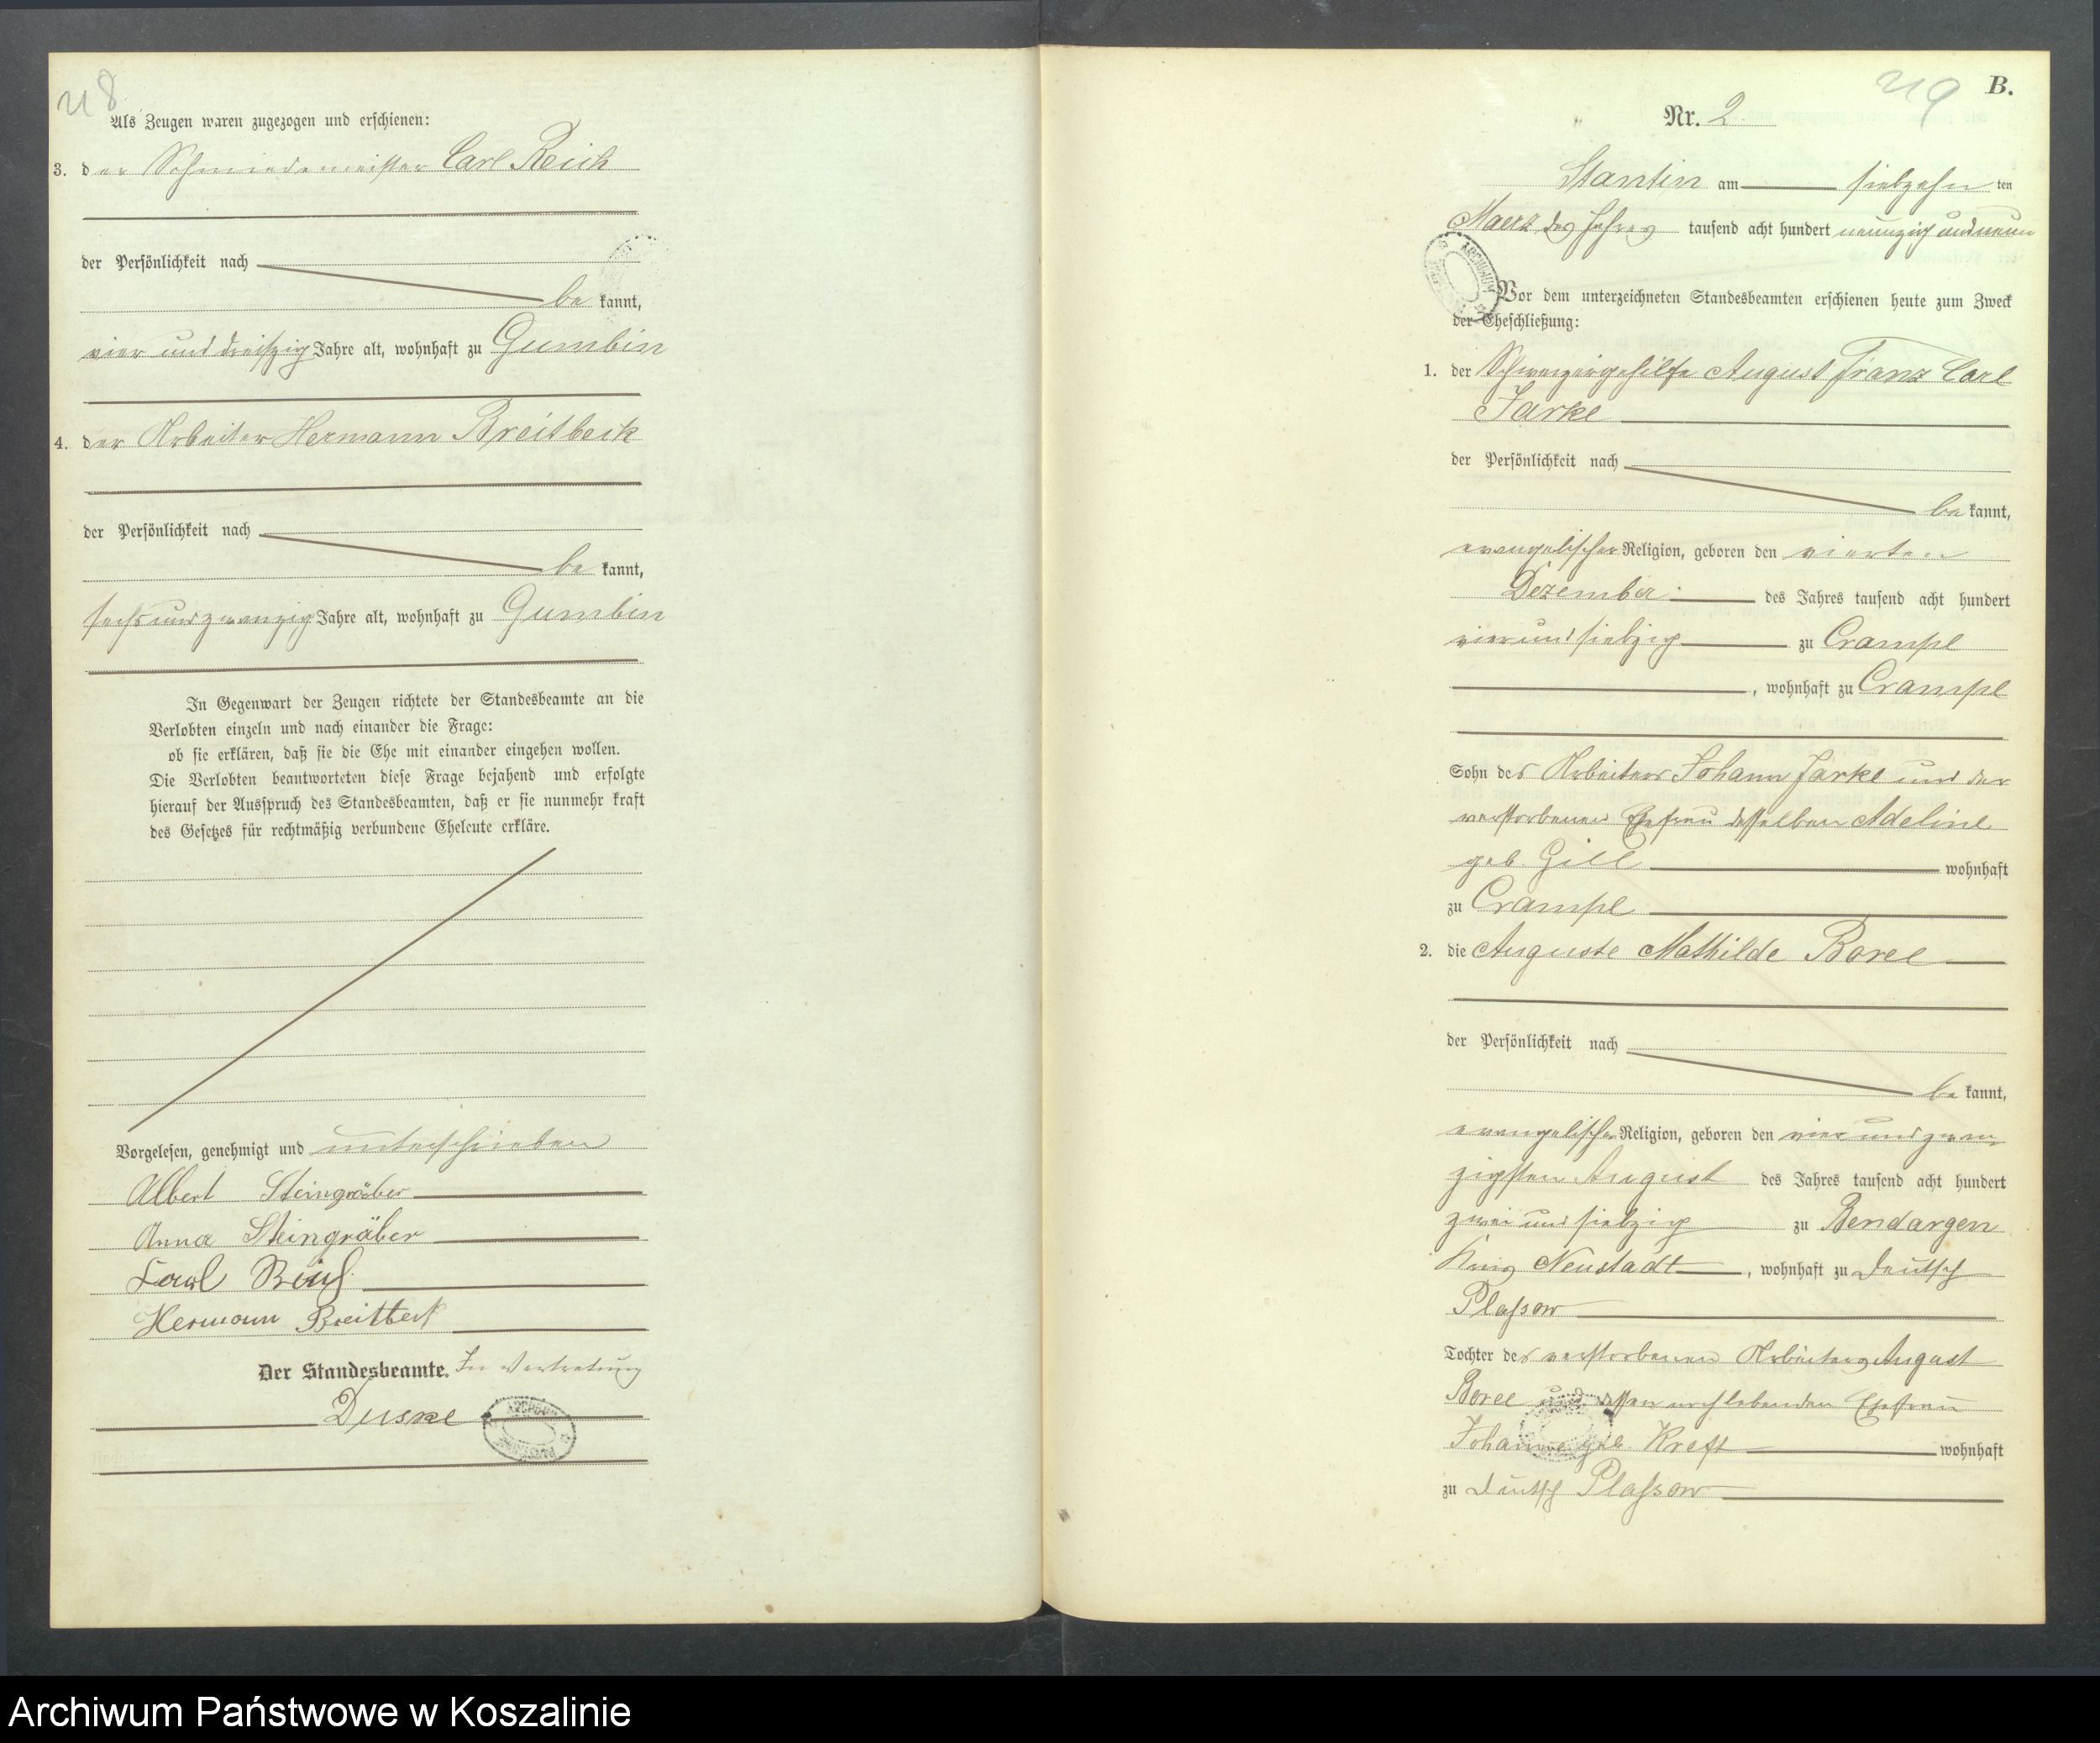 218
Als Zeugen waren zugezogen und erschienen:
3. der Schmiedemeister Carl Reich
der Persönlichkeit nach
be kannt,
vier und dreißzig Jahre alt, wohnhaft zu Gumbin
4. der Arbeiter Hermann Breitbeck
der Persönlichkeit nach
be kannt,
sechsundzwanzig Jahre alt, wohnhaft zu Gumbin
In Gegenwart der Zeugen richtete der Standesbeamte an die
Verlobten einzeln und nach einander die Frage:
ob sie erklären, daß sie die Ehe mit einander eingehen wollen.
Die Verlobten beantworteten diese Frage bejahend und erfolgte
hierauf der Ausspruch des Standesbeamten, daß er sie nunmehr kraft
des Gesetzes für rechtmäßig verbundene Eheleute erkläre.
Vorgelesen, genehmigt und unterschrieben
Albert Steingräber
Anna Steingräber
Carl Reich
Hermann Breitbeck
Der Standesbeamte. In Vertretung
Duske
219 B.
Nr. 2
Stantin am siebzehn ten
Maerz des Jahres tausend acht hundert neunzig und neun
ARCHIWUM
Vor dem unterzeichneten Standesbeamten erschienen heute zum Zweck
der Eheschließung:
1. der Schweizergehilfe August Franz Carl
Jarke
der Persönlichkeit nach
be kannt,
evangelischer Religion, geboren den vierten
Dezember des Jahres tausend acht hundert
vier und siebzig zu Crampe
, wohnhaft zu Crampe
Sohn des Arbeiters Johann Jarke und der
verstorbenen Ehefrau desselben Adeline
geb. Gill wohnhaft
zu Crampe
2. die Auguste Mathilde Boree
der Persönlichkeit nach
be kannt,
evangelischer Religion, geboren den vier und zwan
zigsten August des Jahres tausend acht hundert
zwei und siebzig zu Bendargen
Kreis Neustadt, wohnhaft zu Deutsch
Plassow
Tochter des verstorbenen Arbeiters August
Boree und dessen noch lebenden Ehefrau
Johanne geb. Kreft wohnhaft
zu Deutsch Plassow
Archiwum Państwowe w Koszalinie